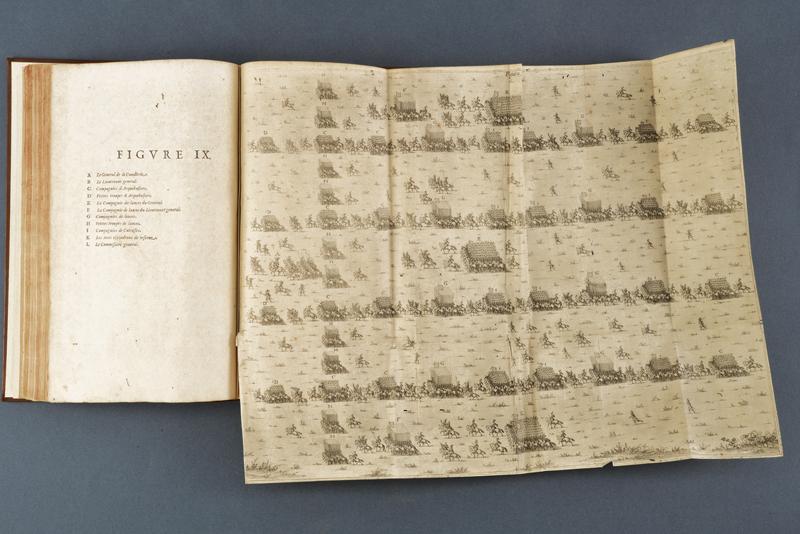 FIGVRE IX.
A Le General de la Cavallerie.
B Le Lieutenant general.
C Compagnies d'Arquebusiers.
D Petites troupes d'Arquebusiers.
E La Compagnie des lances du General.
F La Compagnie de lances du Lieutenant general.
G Compagnies de lances.
H Petites troupes de lances.
I Compagnies de Cuirasses.
K Les trois esquadrons de reserve.
L Le Commissaire general.